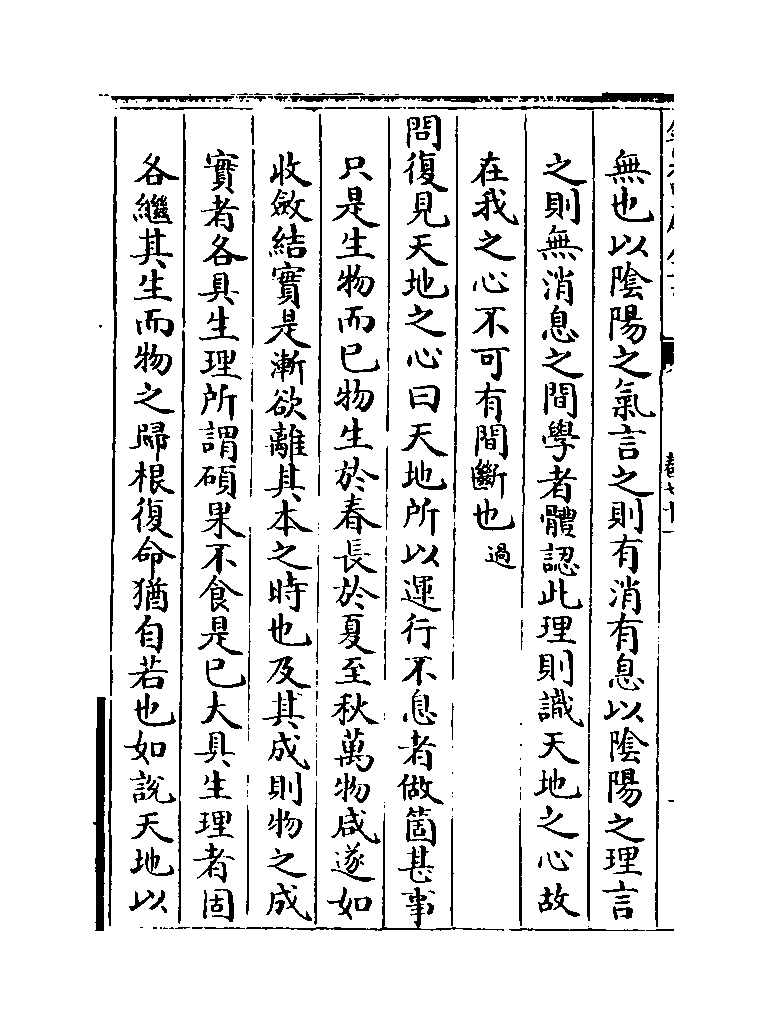 無也以陰陽之氣言之則有消有息以陰陽之理言
之則無消息之間學者體認此理則識天地之心故
在我之心不可有間斷也 過
問復見天地之心曰天地所以運行不息者做箇甚事
只是生物而已物生於春長於夏至秋萬物咸遂如
收斂結實是漸欲離其本之時也及其成則物之成
實者各具生理所謂碩果不食是已大具生理者固
各繼其生而物之歸根復命猶自若也如說天地以